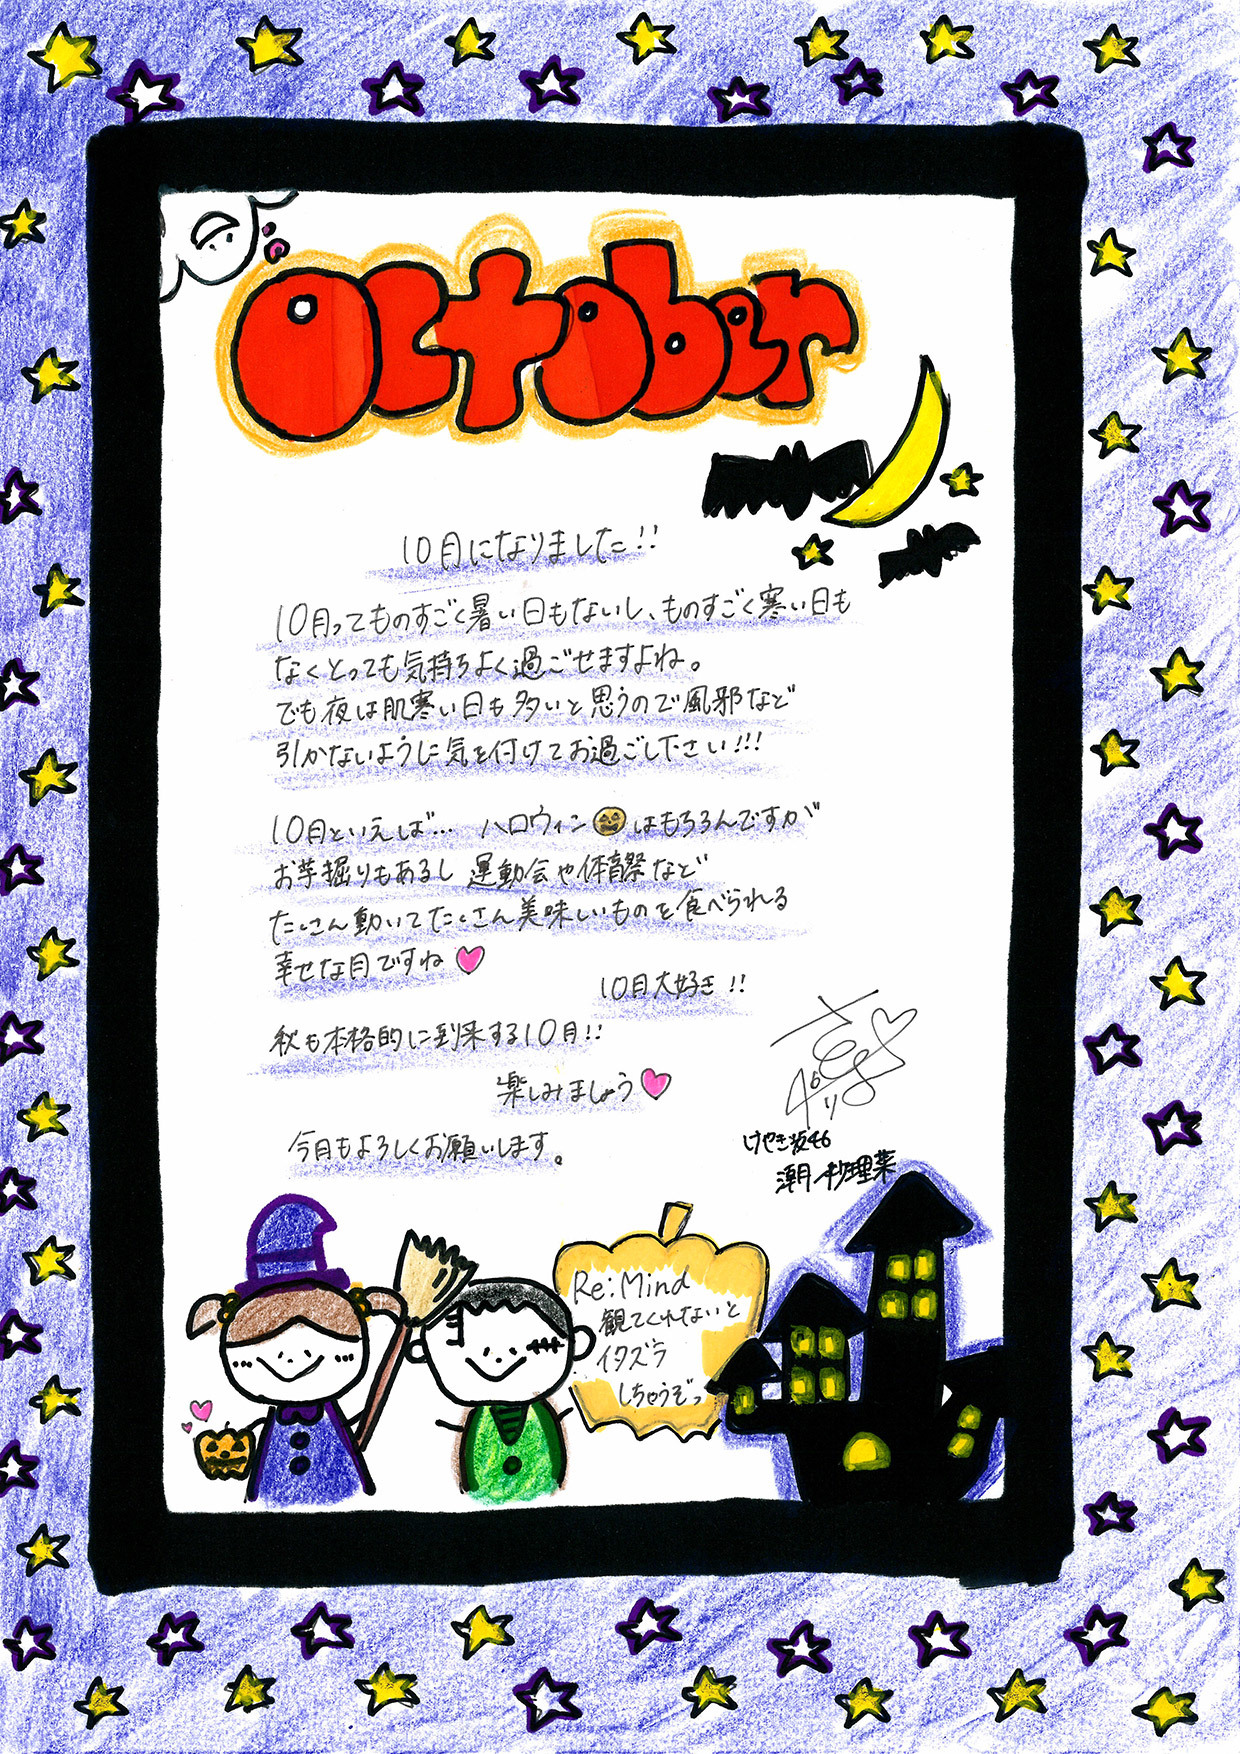 October
10月になりました!!
10月ってものすごく暑い日もないし、ものすごく寒い日も
なくとっても気持ちよく過ごせますよね。
でも夜は肌寒い日も多いと思うので風邪など
引かないように気を付けてお過ごし下さい!!!
10月といえば… ハロウィン🎃はもちろんですが
お芋掘りもあるし 運動会や体育祭など
たくさん動いてたくさん美味しいものを食べられる
幸せな月ですね♡
10月大好き!!
秋も本格的に到来する10月!!
楽しみましょう♡
今月もよろしくお願いします。
けやき坂46
潮 紗理菜
Re:Mind
観てくれないと
イタズラ
しちゃうぞっ